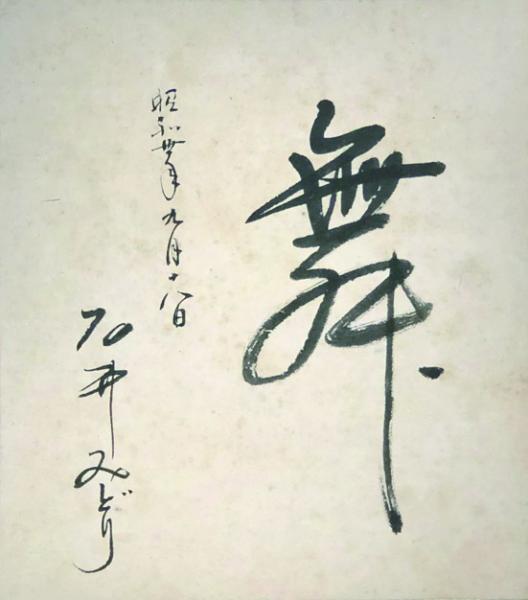 舞
昭和卅年九月十八日
石井みどり